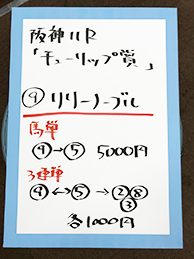 阪神11R
「チューリップ賞」
⑨リリーノーブル
馬単
⑨→⑤ 5000円
3連単
⑨↔⑤→②⑧
③
各1000円